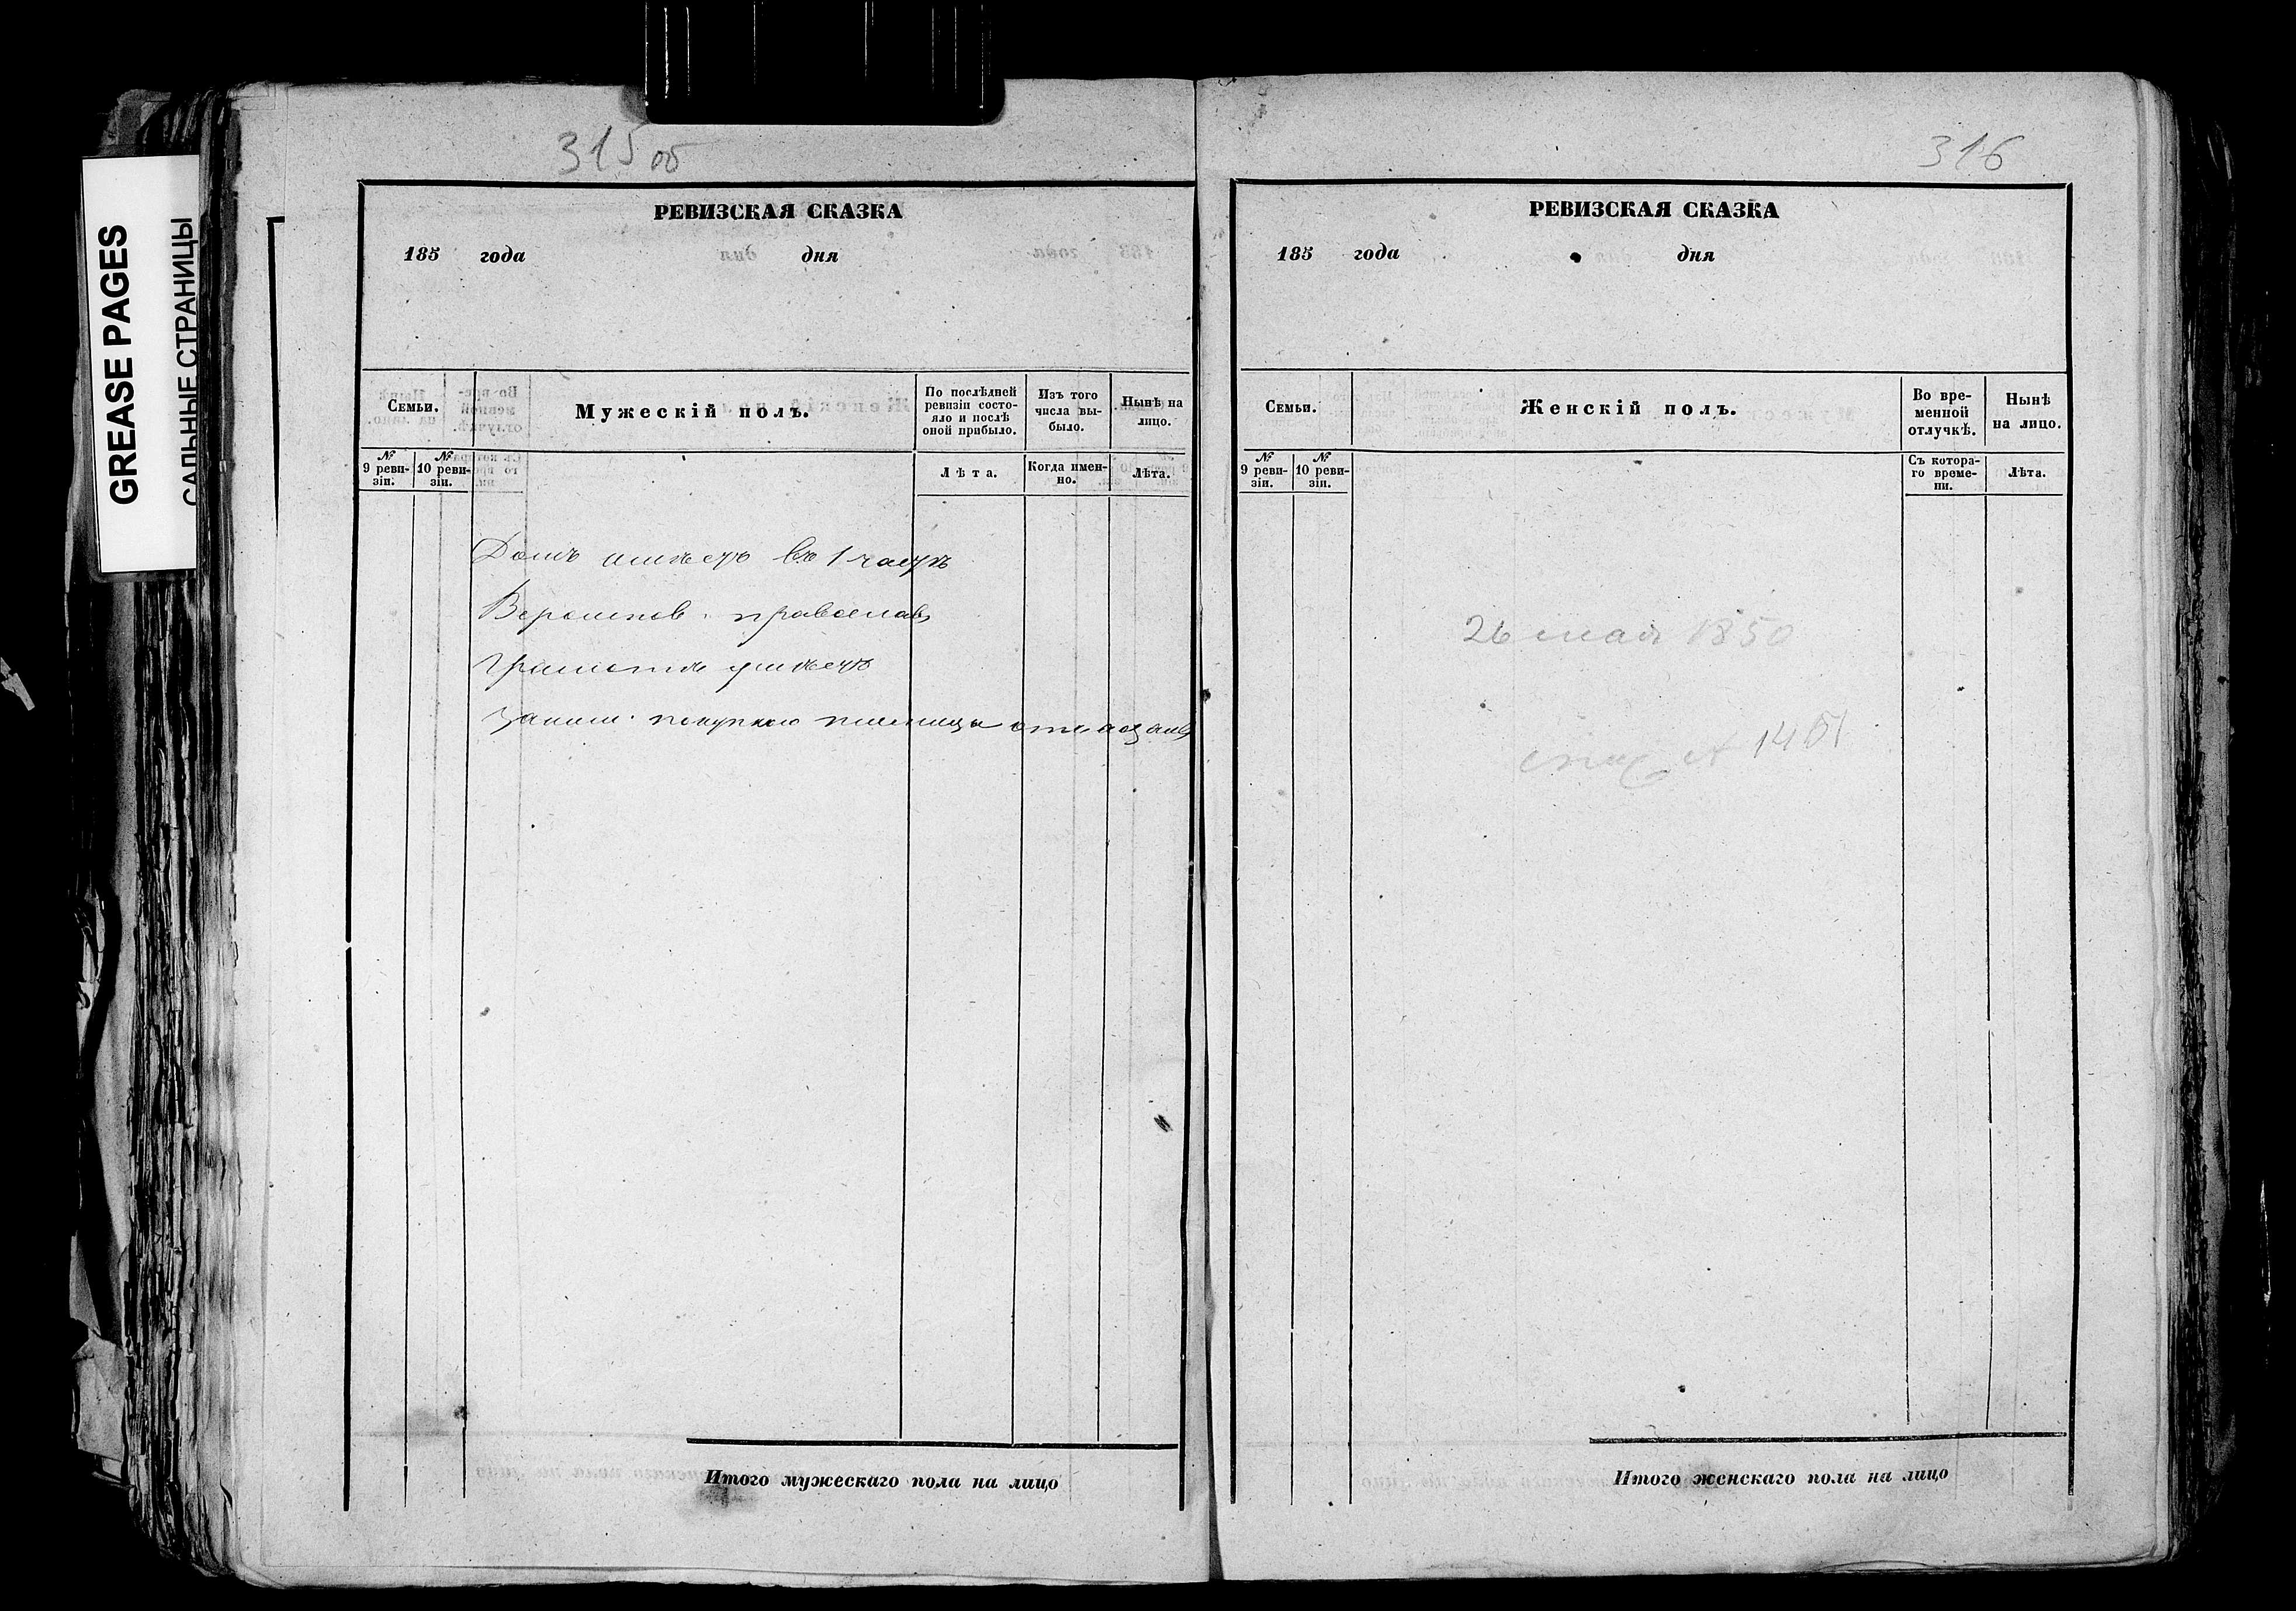 GREASE PAGES
САЛЬНЫЕ СТРАНИЦЫ
315 об
РЕВИЗСКАЯ СКАЗКА
185 года дня
Семьи.
Мужескій полъ.
По послѣдней ревизіи состояло и послѣ оной прибыло.
Изъ того числа выбыло.
Нынѣ на лицо.
№ 9 ревизіи.
№ 10 ревизіи.
Лѣта.
Когда именно.
Лѣта.
Домъ имѣетъ въ 1 части
Вероиспов. православ
Грамотѣ умѣетъ
Заним. покупкою пшеницы
Итого мужескаго пола на лицо
316
РЕВИЗСКАЯ СКАЗКА
185 года дня
Семьи.
Женскій полъ.
Во временной отлучкѣ.
Нынѣ на лицо.
№ 9 ревизіи.
№ 10 ревизіи.
Съ котораго времени.
Лѣта.
26 мая 1850
Итого женскаго пола на лицо